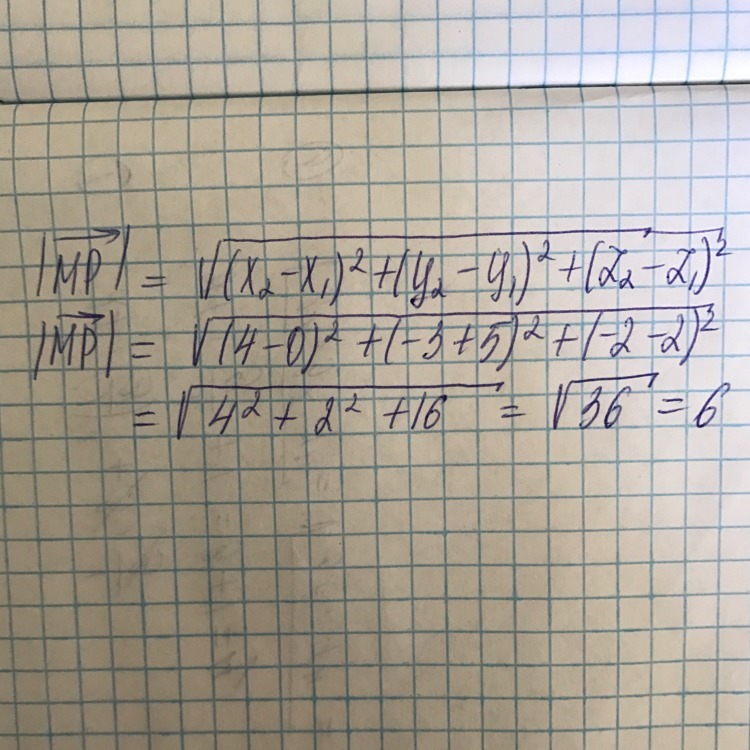 |MP⃗| = √(x₂-x₁)² + (y₂-y₁)² + (z₂-z₁)²
|MP⃗| = √(4-0)² + (-3+5)² + (-2-2)²
= √4² + 2² + 16 = √36 = 6